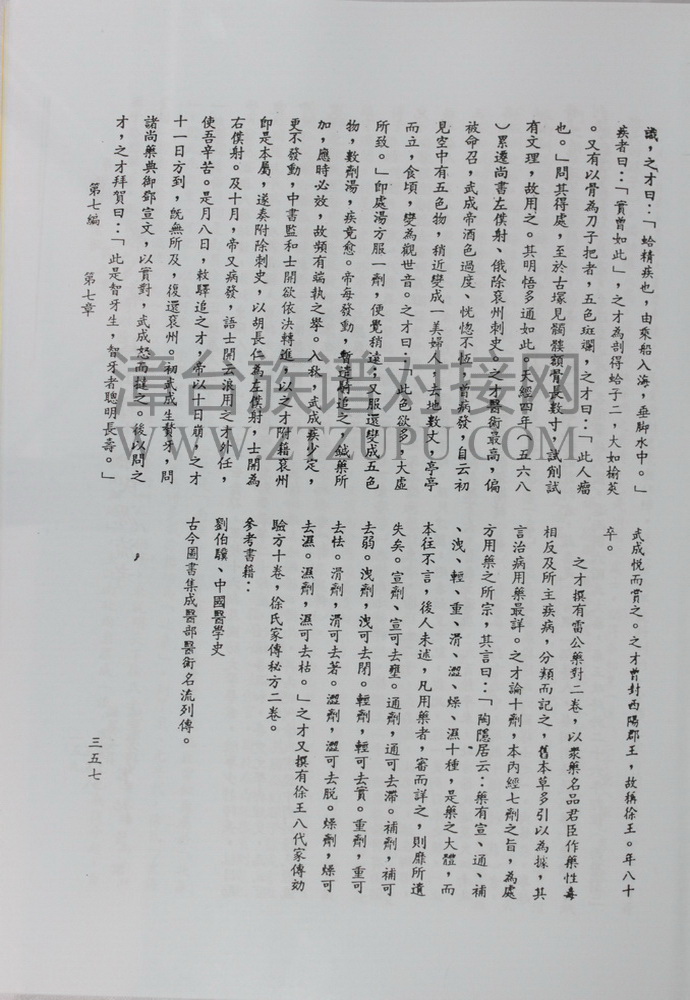 識，之才曰：「蛤精疾也，由乘船入海，垂脚水中。」
疾者曰：「實曾如此」，之才為剖得蛤子二，大如榆莢
。又有以骨為刀子把者，五色斑斕，之才曰：「此人瘤
也。」問其得處，至於古塚見髑髏額骨長數寸，試削試
有文理，故用之。其明悟多通如此。天統四年（五六八
）累遷尚書左僕射、俄除兗州刺史。之才醫術最高，偏
被命召，武成帝酒色過度、恍惚不恆，曾病發，自云初
見空中有五色物，稍近變成一美婦人，去地數丈，亭亭
而立，食頃，變為觀世音。之才曰：「此色欲多，大虛
所致。」即處湯方服一劑，便覺稍遠；又服還變成五色
物，數劑湯，疾竟愈。帝每發動，暫遣騎追之，鍼藥所
加，應時必效，故頻有端執之舉。入秋，武成疾少定，
更不發動，中書監和士開欲依次轉進，以之才附籍兗州
即是本屬，遂奏附除刺史，以胡長仁為左僕射，士開為
右僕射。及十月，帝又病發，語士開云浪用之才外任，
使吾辛苦。是月八日，敕驛追之才，帝以十日崩，之才
十一日方到，既無所及，復還兗州。初武成生齻牙，問
諸尚藥典御鄧宣文，以實對，武成怒而撻之。後以問之
才，之才拜賀曰：「此是智牙生，智牙者聰明長壽。」
武成悅而賞之。之才曾封西陽郡王，故稱徐王。年八十
卒。
之才撰有雷公藥對二卷，以眾藥名品君臣作藥性毒
相反及所主疾病，分類而記之，舊本草多引以為據，其
言治病用藥最詳。之才論十劑，本內經七劑之旨，為處
方用藥之所宗，其言曰：「陶隱居云：藥有宣、通、補
、洩、輕、重、滑、澀、燥、濕十種，是藥之大體，而
本往不言，後人未述，凡用藥者，審而詳之，則靡所遺
失矣。宣劑、宣可去壅。通劑，通可去滯。補劑，補可
去弱。洩劑，洩可去閉。輕劑，輕可去實。重劑，重可
去怯。滑劑，滑可去著。澀劑，澀可去脫。燥劑，燥可
去濕。濕劑，濕可去枯。」之才又撰有徐王八代家傳効
驗方十卷，徐氏家傳秘方二卷。
參考書籍：
劉伯驥、中國醫學史
古今圖書集成醫部醫術名流列傳。
第七編　第七章
三五七
漳台族谱对接网
WWW.ZTZUPU.COM